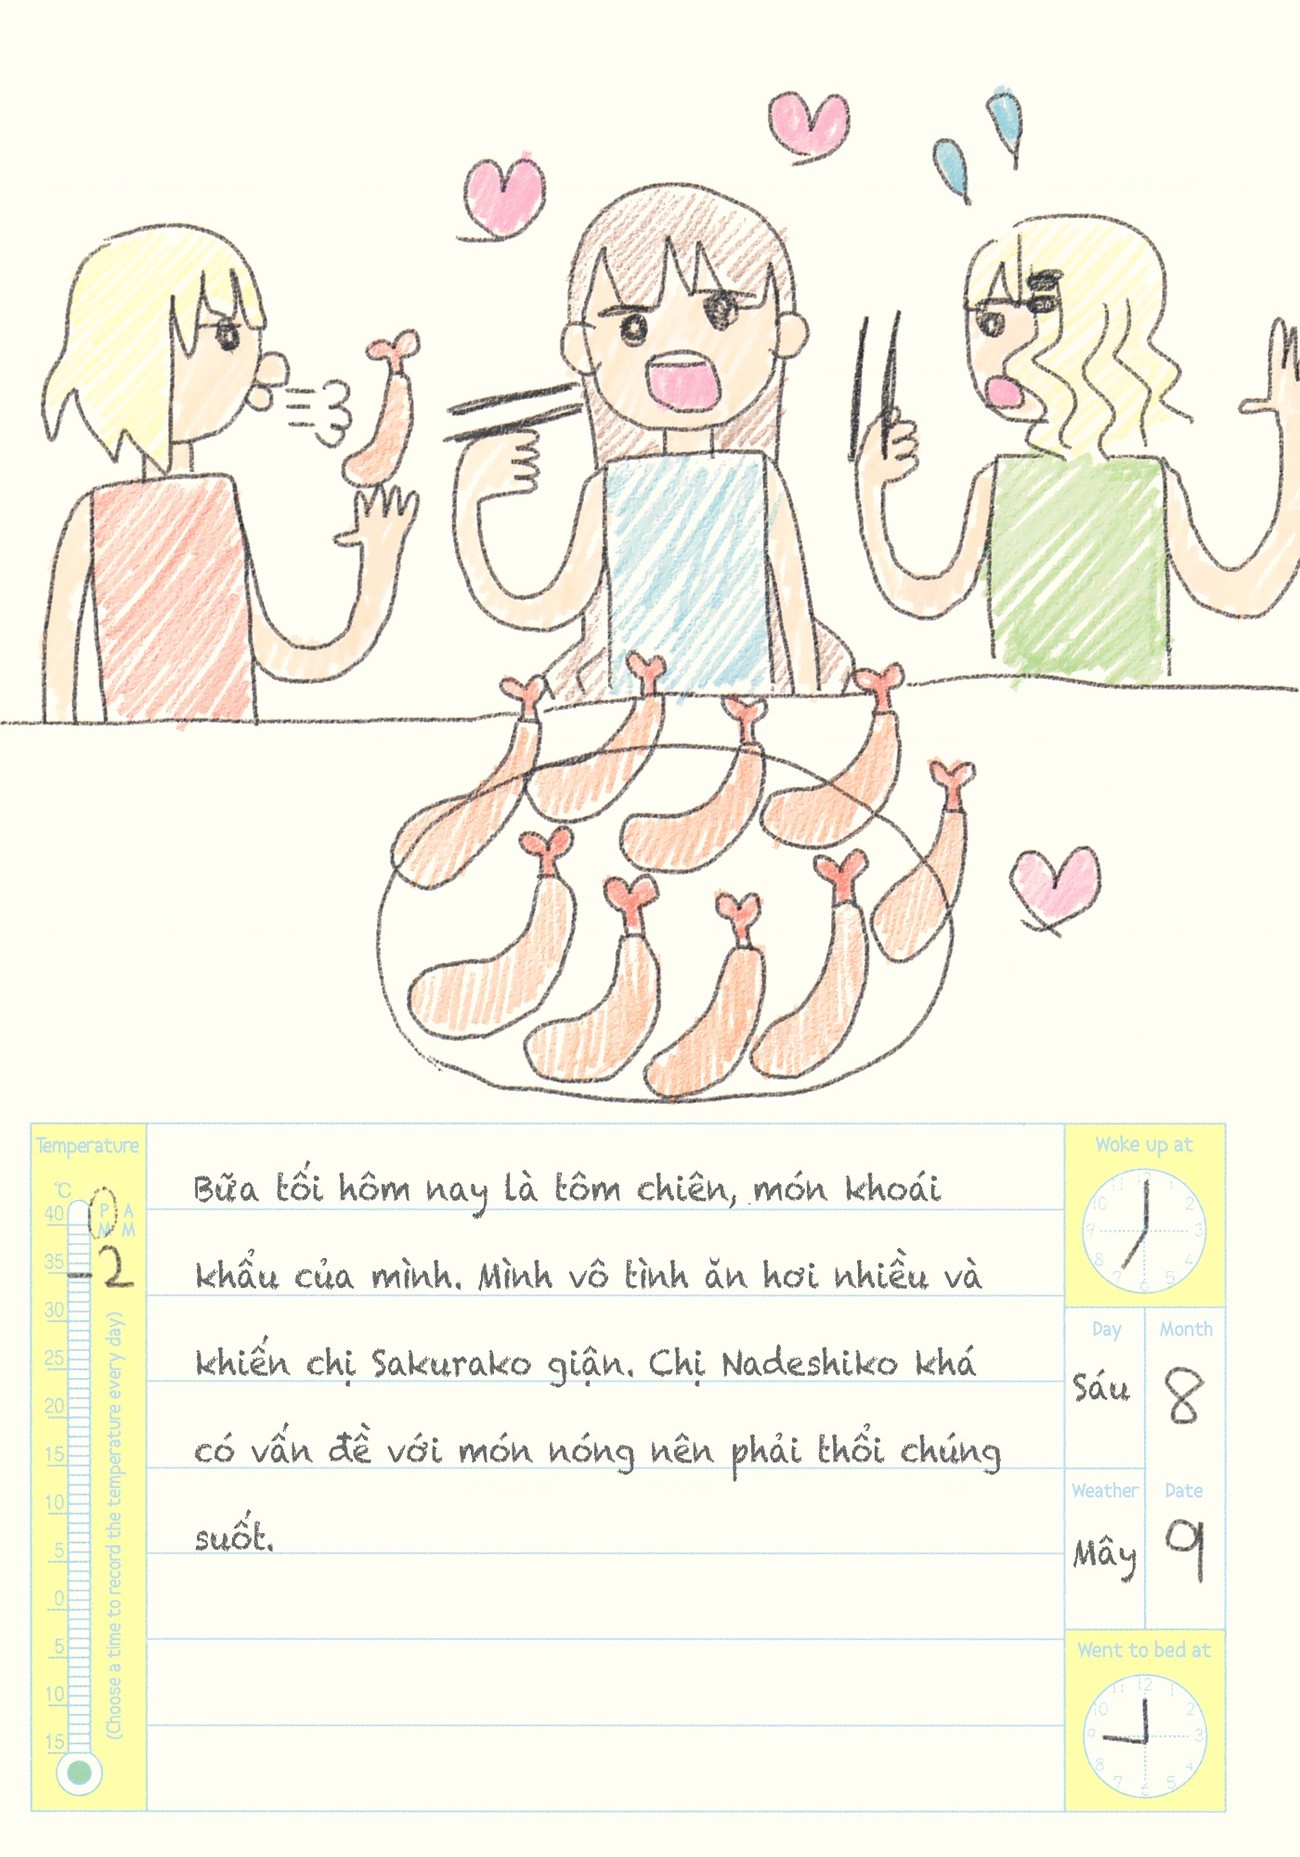 Temperature
℃
40
P M
A M
2
35
30
25
20
15
10
5
0
5
10
15
(Choose a time to record the temperature every day)
Bữa tối hôm nay là tôm chiên, món khoái
khẩu của mình. Mình vô tình ăn hơi nhiều và
khiến chị Sakurako giận. Chị Nadeshiko khá
có vấn đề với món nóng nên phải thổi chúng
suốt.
Woke up at
Day
Month
Sáu
8
Weather
Date
Mây
9
Went to bed at